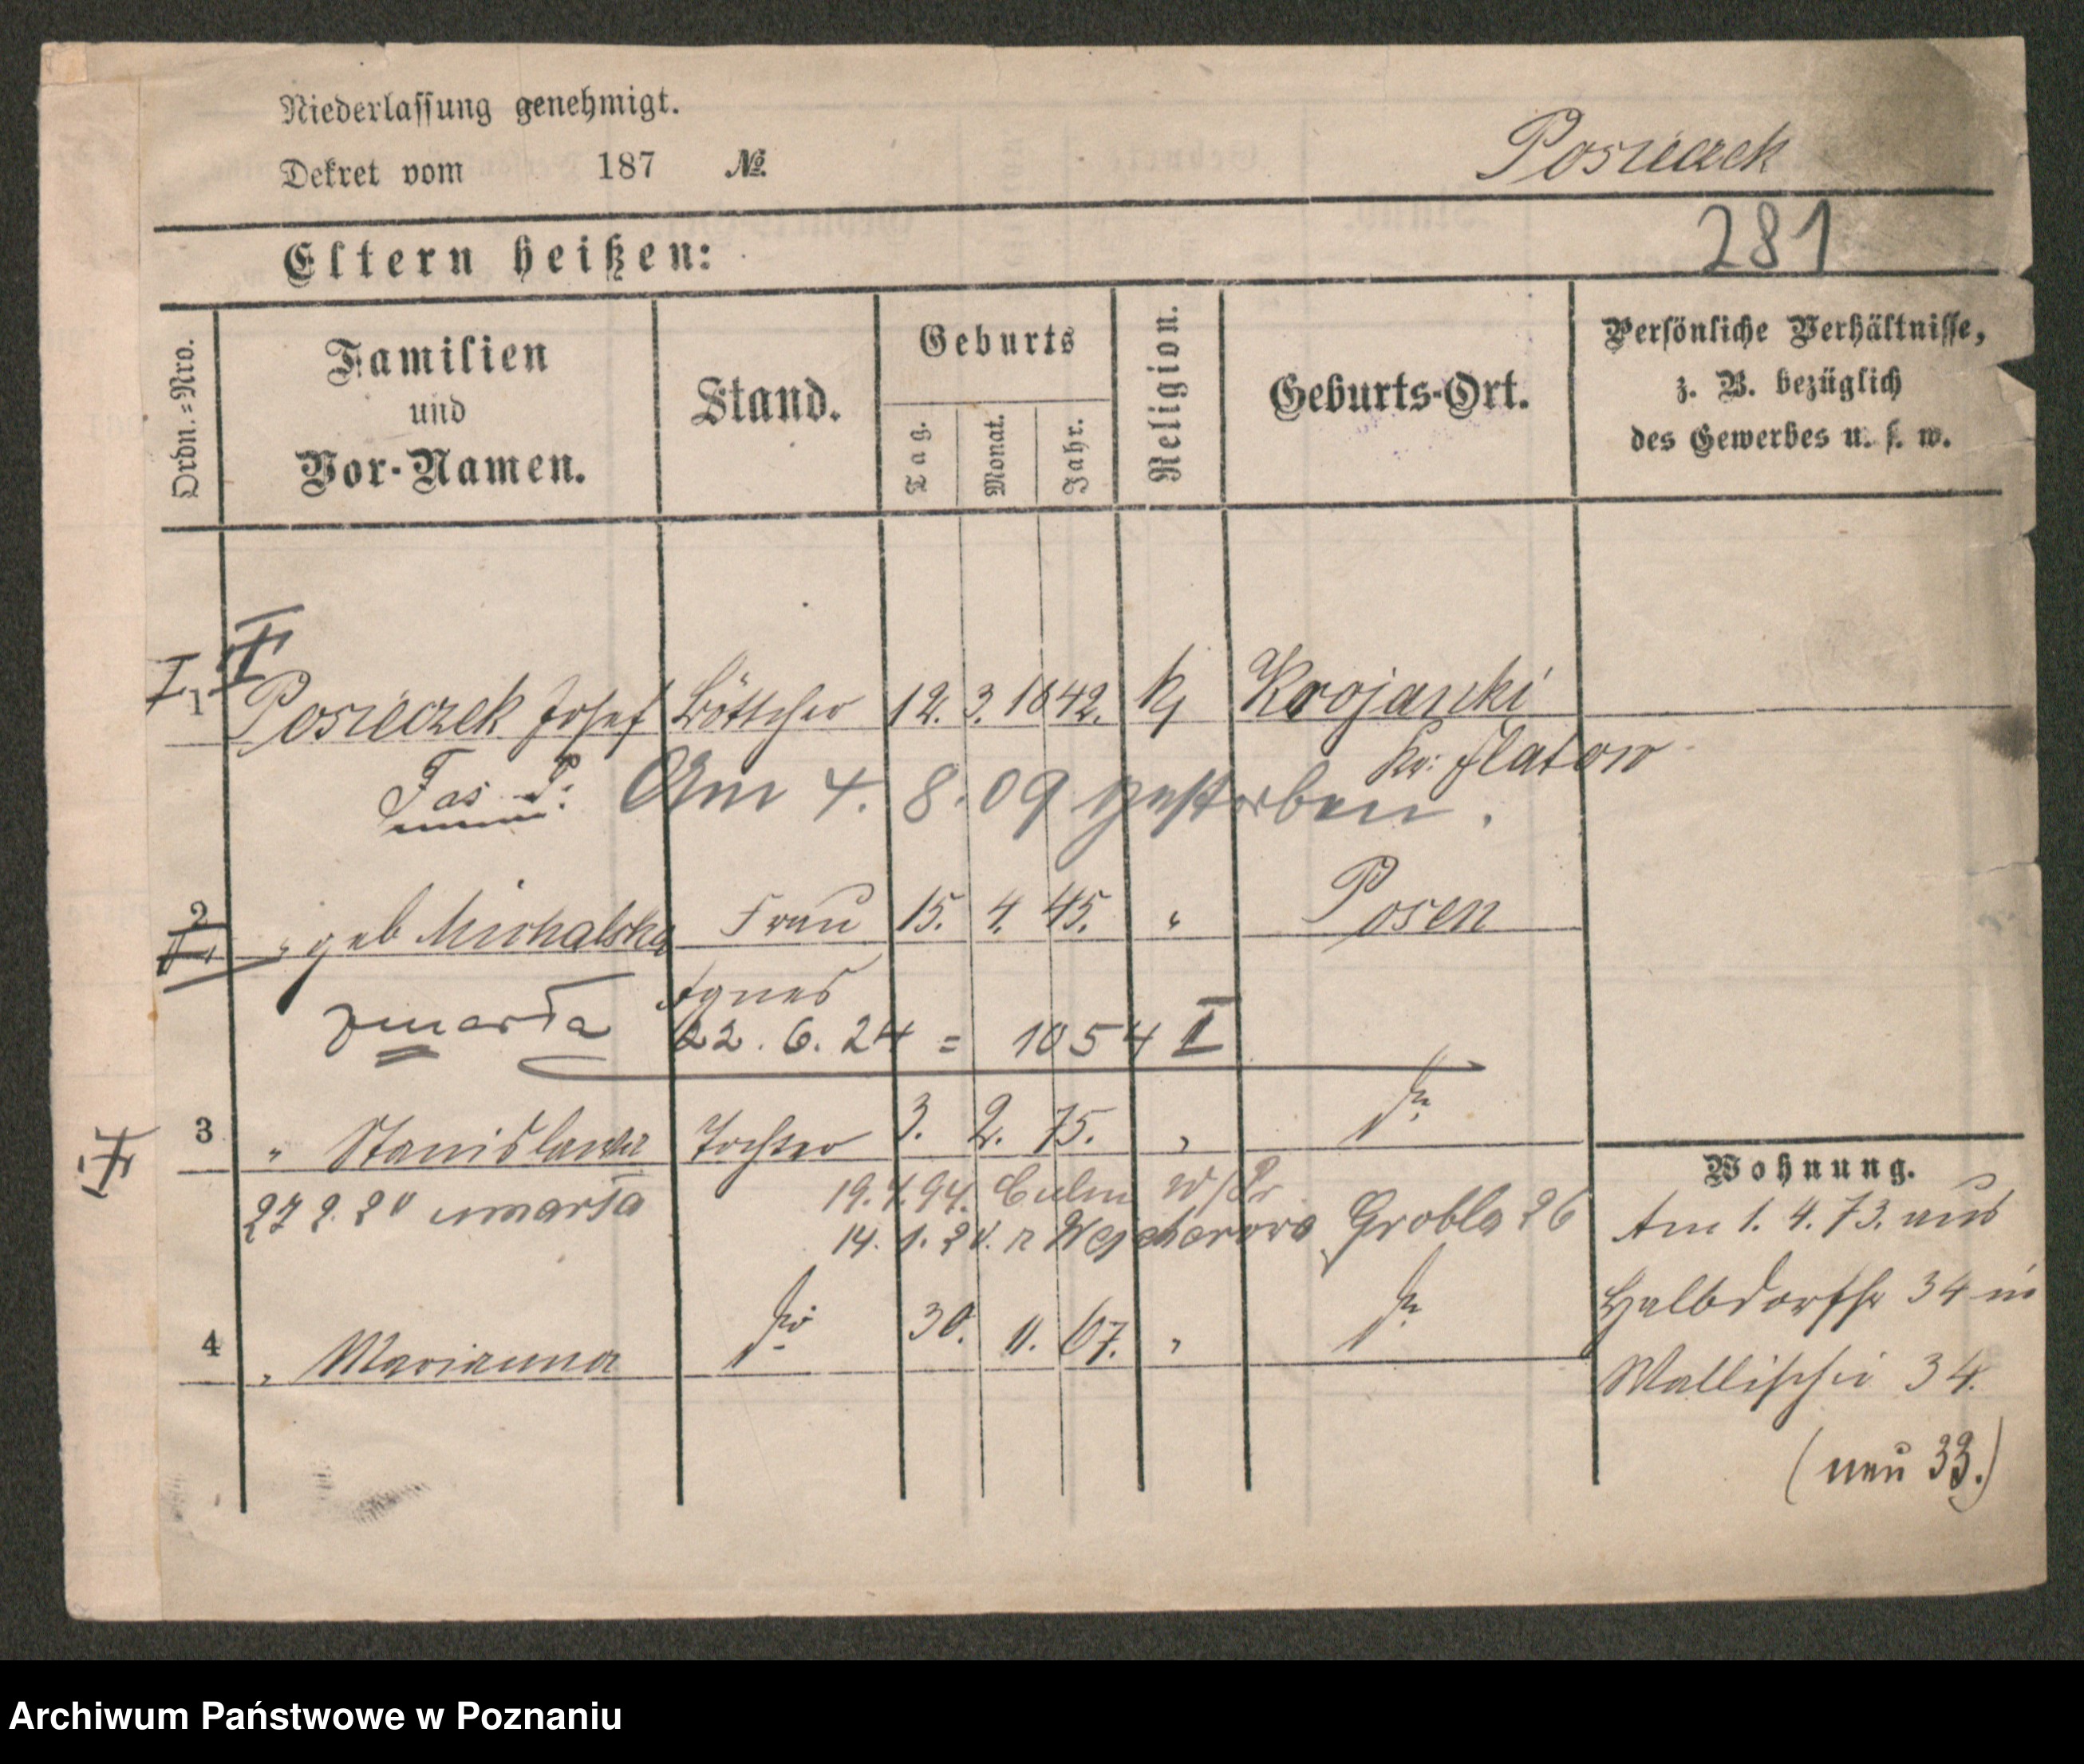 Niederlassung genehmigt.
Dekret vom 187 №.
Posieczek
281
Eltern heißen:
Ordn.=Nro.
Familien und Vor-Namen.
Stand.
Geburts
Tag. Monat. Jahr.
Religion.
Geburts-Ort.
Persönliche Verhältnisse,
z. B. bezüglich
des Gewerbes u. s. w.
I 1 Posieczek Josef Böttcher 12. 3. 1842. k Krojanki
Kr. Flatow
Am 4. 8. 09 gestorben.
2 " geb Michalska Frau 15. 4. 45. " Posen
Agnes
zmarła 22. 6. 24 = 1054 I
3 " Stanislawa Tochter 3. 2. 75. "
19. 4. 94. Culm W/Pr
27 2. 20 umarła 14. 1. 20. z Wejherowa Grobla 26
4 " Marianna do 30. 11. 67. "
Wohnung.
Am 1. 4. 73. aus
Halbdorfstr 34 in
Wallischei 34.
(neu 33.)
Archiwum Państwowe w Poznaniu